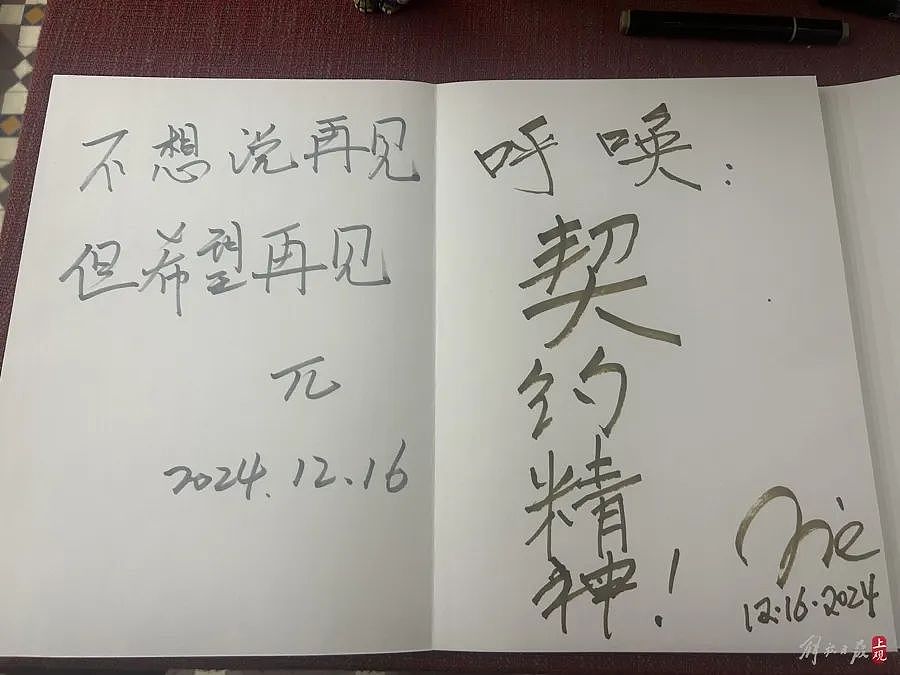 不想说再见
但希望再见
兀
2024.12.16
呼唤：
契
约
精
神！
12·16·2024
解放日报
上观